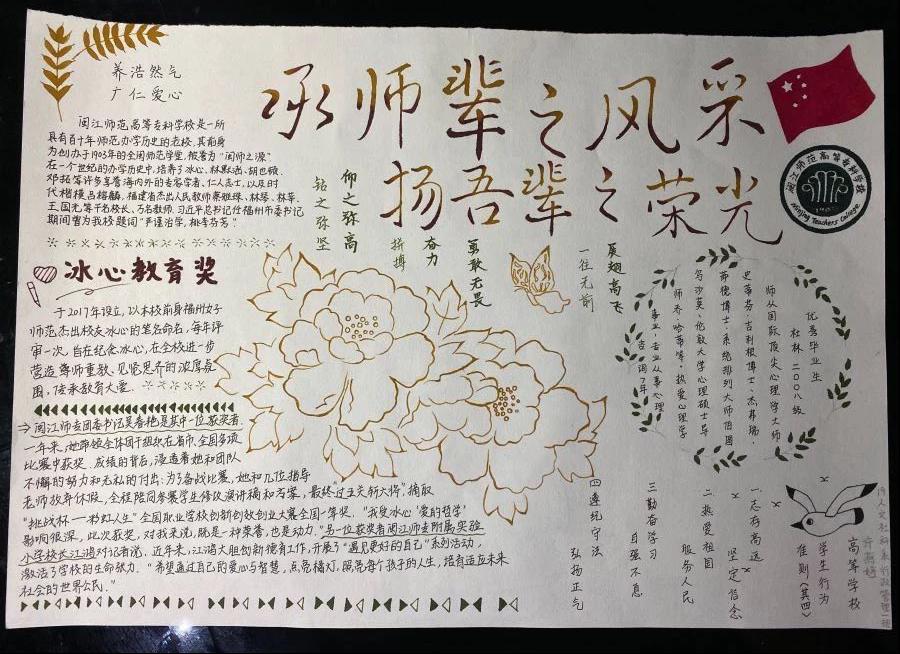 养浩然气
广仁爱心
承师辈之风采
扬吾辈之荣光
闽江师范高等专科学校
Minjiang Teachers College
闽江师范高等专科学校是一所
具有百十年师范办学历史的老校，其前身
为创办于1903年的全闽师范学堂，被誉为“闽师之源”
在一个世纪的办学历史中，培养了冰心、林默涵、胡也频、
邓拓等许多享誉海内外的专家学者、仁人志士，以及时
代楷模吕榕麟，福建省杰出人民教师
王国光等千名校长、万名教师，习近平总书记任福州市委书记
期间曾为我校题词“严谨治学，桃李芬芳。”
仰之弥高
钻之弥坚
勇敢无畏
奋力
拼搏
展翅高飞
一往无前
冰心教育奖
于2017年设立，以本校前身福州女子
师范杰出校友冰心的笔名命名，每年评
审一次，旨在纪念冰心，在全校进一步
营造尊师重教、见贤思齐的浓厚氛
围，传承教育大爱。
闽江师专团委书记吴春艳是其中一位获奖者。
一年来，她带领全体团干组织在省市、全国各项
比赛中获奖，成绩的背后，浸透着她和团队
不懈的努力和无私的付出：为了备战比赛，她和几位指导
老师放弃休假，全程陪同参赛学生修改演讲稿和方案，最终过五关斩六将，摘取
“挑战杯——彩虹人生”全国职业学校创新创效创业大赛全国一等奖。“我受冰心‘爱的哲学’
影响很深，此次获奖，对我来说，既是一种荣誉，也是动力。”另一位获奖者闽江师专附属实验
小学校长江鸿对记者说，近年来，江鸿大胆创新德育工作，开展了“遇见更好的自己”系列活动，
激活了学校的生命张力。“希望通过自己的爱心与智慧，点亮橘灯，照亮每个孩子的人生，培育适应未来
社会的世界公民。”
优秀毕业生
杜林 二00八级
师从国际顶尖心理学大师，
史蒂芬·吉利根博士、杰弗瑞·
萨德博士、系统排列大师伯图·
乌沙莫、伦敦大学心理硕士导
师乔·哈蒂等，热爱心理学
事业，专业从事心理
咨询7年
高等学校
学生行为
准则（其四）
一．志存高远
坚定信念
二．热爱祖国
服务人民
三．勤奋学习
自强不息
四．遵纪守法
弘扬正气